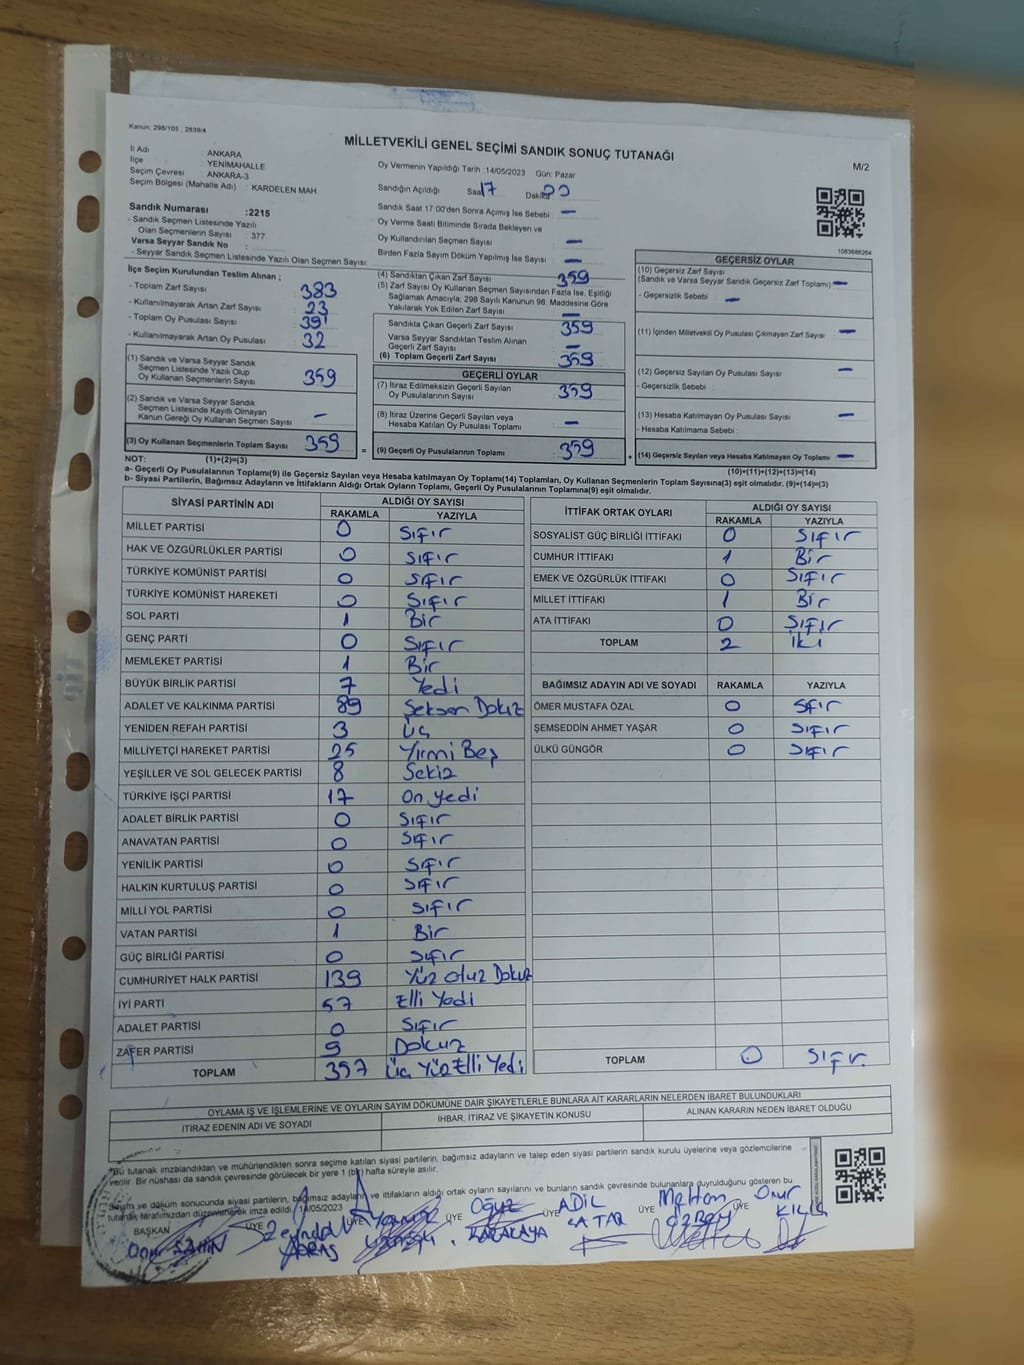 Kanun: 298/105 , 2839/4
MİLLETVEKİLİ GENEL SEÇİMİ SANDIK SONUÇ TUTANAĞI
M/2
İl Adı : ANKARA
İlçe : YENİMAHALLE
Seçim Çevresi : ANKARA-3
Seçim Bölgesi (Mahalle Adı) : KARDELEN MAH
Oy Vermenin Yapıldığı Tarih :14/05/2023 Gün: Pazar
Sandığın Açıldığı Saat 17 Dakika
Sandık Saat 17:00'den Sonra Açımış İse Sebebi : —
Oy Verme Saati Bitiminde Sırada Bekleyen ve
Oy Kullandırılan Seçmen Sayısı : —
Birden Fazla Sayım Döküm Yapılmış İse Sayısı : —
Sandık Numarası :2215
- Sandık Seçmen Listesinde Yazılı
Olan Seçmenlerin Sayısı : 377
Varsa Seyyar Sandık No :
- Seyyar Sandık Seçmen Listesinde Yazılı Olan Seçmen Sayısı:
1083688264
İlçe Seçim Kurulundan Teslim Alınan ;
- Toplam Zarf Sayısı : 383
- Kullanılmayarak Artan Zarf Sayısı : 23
- Toplam Oy Pusulası Sayısı : 391
- Kullanılmayarak Artan Oy Pusulası : 32
(1) Sandık ve Varsa Seyyar Sandık
Seçmen Listesinde Yazılı Olup
Oy Kullanan Seçmenlerin Sayısı : 359
(2) Sandık ve Varsa Seyyar Sandık
Seçmen Listesinde Kayıtlı Olmayan
Kanun Gereği Oy Kullanan Seçmen Sayısı : —
(3) Oy Kullanan Seçmenlerin Toplam Sayısı : 359
(4) Sandıktan Çıkan Zarf Sayısı : 359
(5) Zarf Sayısı Oy Kullanan Seçmen Sayısından Fazla İse, Eşitliği
Sağlamak Amacıyla; 298 Sayılı Kanunun 98. Maddesine Göre
Yakılarak Yok Edilen Zarf Sayısı : —
Sandıkta Çıkan Geçerli Zarf Sayısı : 359
Varsa Seyyar Sandıktan Teslim Alınan
Geçerli Zarf Sayısı : —
(6) Toplam Geçerli Zarf Sayısı : 359
GEÇERLİ OYLAR
(7) İtiraz Edilmeksizin Geçerli Sayılan
Oy Pusulalarının Sayısı : 359
(8) İtiraz Üzerine Geçerli Sayılan veya
Hesaba Katılan Oy Pusulası Toplamı : —
= (9) Geçerli Oy Pusulalarının Toplamı : 359
GEÇERSİZ OYLAR
(10) Geçersiz Zarf Sayısı
(Sandık ve Varsa Seyyar Sandık Geçersiz Zarf Toplamı) : —
- Geçersizlik Sebebi : —
(11) İçinden Milletvekili Oy Pusulası Çıkmayan Zarf Sayısı : —
(12) Geçersiz Sayılan Oy Pusulası Sayısı : —
- Geçersizlik Sebebi :
(13) Hesaba Katılmayan Oy Pusulası Sayısı : —
- Hesaba Katılmama Sebebi :
+ (14) Geçersiz Sayılan veya Hesaba Katılmayan Oy Toplamı : —
NOT: (1)+(2)=(3)
(10)+(11)+(12)+(13)=(14)
a- Geçerli Oy Pusulalarının Toplamı(9) ile Geçersiz Sayılan veya Hesaba katılmayan Oy Toplamı(14) Toplamları, Oy Kullanan Seçmenlerin Toplam Sayısına(3) eşit olmalıdır. (9)+(14)=(3)
b- Siyasi Partilerin, Bağımsız Adayların ve İttifakların Aldığı Ortak Oyların Toplamı, Geçerli Oy Pusulalarının Toplamına(9) eşit olmalıdır.
SİYASİ PARTİNİN ADI ALDIĞI OY SAYISI
RAKAMLA YAZIYLA
MİLLET PARTİSİ 0 Sıfır
HAK VE ÖZGÜRLÜKLER PARTİSİ 0 Sıfır
TÜRKİYE KOMÜNİST PARTİSİ 0 Sıfır
TÜRKİYE KOMÜNİST HAREKETİ 0 Sıfır
SOL PARTİ 1 Bir
GENÇ PARTİ 0 Sıfır
MEMLEKET PARTİSİ 1 Bir
BÜYÜK BİRLİK PARTİSİ 7 Yedi
ADALET VE KALKINMA PARTİSİ 89 Seksen Dokuz
YENİDEN REFAH PARTİSİ 3 Üç
MİLLİYETÇİ HAREKET PARTİSİ 25 Yirmi Beş
YEŞİLLER VE SOL GELECEK PARTİSİ 8 Sekiz
TÜRKİYE İŞÇİ PARTİSİ 17 On yedi
ADALET BİRLİK PARTİSİ 0 Sıfır
ANAVATAN PARTİSİ 0 Sıfır
YENİLİK PARTİSİ 0 Sıfır
HALKIN KURTULUŞ PARTİSİ 0 Sıfır
MİLLİ YOL PARTİSİ 0 Sıfır
VATAN PARTİSİ 1 Bir
GÜÇ BİRLİĞİ PARTİSİ 0 Sıfır
CUMHURİYET HALK PARTİSİ 139 Yüz Otuz Dokuz
İYİ PARTİ 57 Elli Yedi
ADALET PARTİSİ 0 Sıfır
ZAFER PARTİSİ 9 Dokuz
TOPLAM 357 Üç Yüz Elli Yedi
İTTİFAK ORTAK OYLARI ALDIĞI OY SAYISI
RAKAMLA YAZIYLA
SOSYALİST GÜÇ BİRLİĞİ İTTİFAKI 0 Sıfır
CUMHUR İTTİFAKI 1 Bir
EMEK VE ÖZGÜRLÜK İTTİFAKI 0 Sıfır
MİLLET İTTİFAKI 1 Bir
ATA İTTİFAKI 0 Sıfır
TOPLAM 2 İki
BAĞIMSIZ ADAYIN ADI VE SOYADI RAKAMLA YAZIYLA
ÖMER MUSTAFA ÖZAL 0 Sıfır
ŞEMSEDDİN AHMET YAŞAR 0 Sıfır
ÜLKÜ GÜNGÖR 0 Sıfır
TOPLAM 0 Sıfır.
OYLAMA İŞ VE İŞLEMLERİNE VE OYLARIN SAYIM DÖKÜMÜNE DAİR ŞİKAYETLERLE BUNLARA AİT KARARLARIN NELERDEN İBARET BULUNDUKLARI
İTİRAZ EDENİN ADI VE SOYADI İHBAR, İTİRAZ VE ŞİKAYETİN KONUSU ALINAN KARARIN NEDEN İBARET OLDUĞU
*Bu tutanak imzalandıktan ve mühürlendikten sonra seçime katılan siyasi partilerin, bağımsız adayların ve talep eden siyasi partilerin sandık kurulu üyelerine veya gözlemcilerine
verilir. Bir nüshası da sandık çevresinde görülecek bir yere 1 (bir) hafta süreyle asılır.
Sayım ve döküm sonucunda siyasi partilerin, bağımsız adayların ve ittifakların aldığı ortak oyların sayılarını ve bunların sandık çevresinde bulunanlara duyrulduğunu gösteren bu
tutanak tarafımızdan düzenlenerek imza edildi. 14/05/2023
BAŞKAN ÜYE ÜYE ÜYE ÜYE ÜYE ÜYE
Onur ŞAHİN
ARAS
Oğuz KARAKAYA
ADİL
Onur